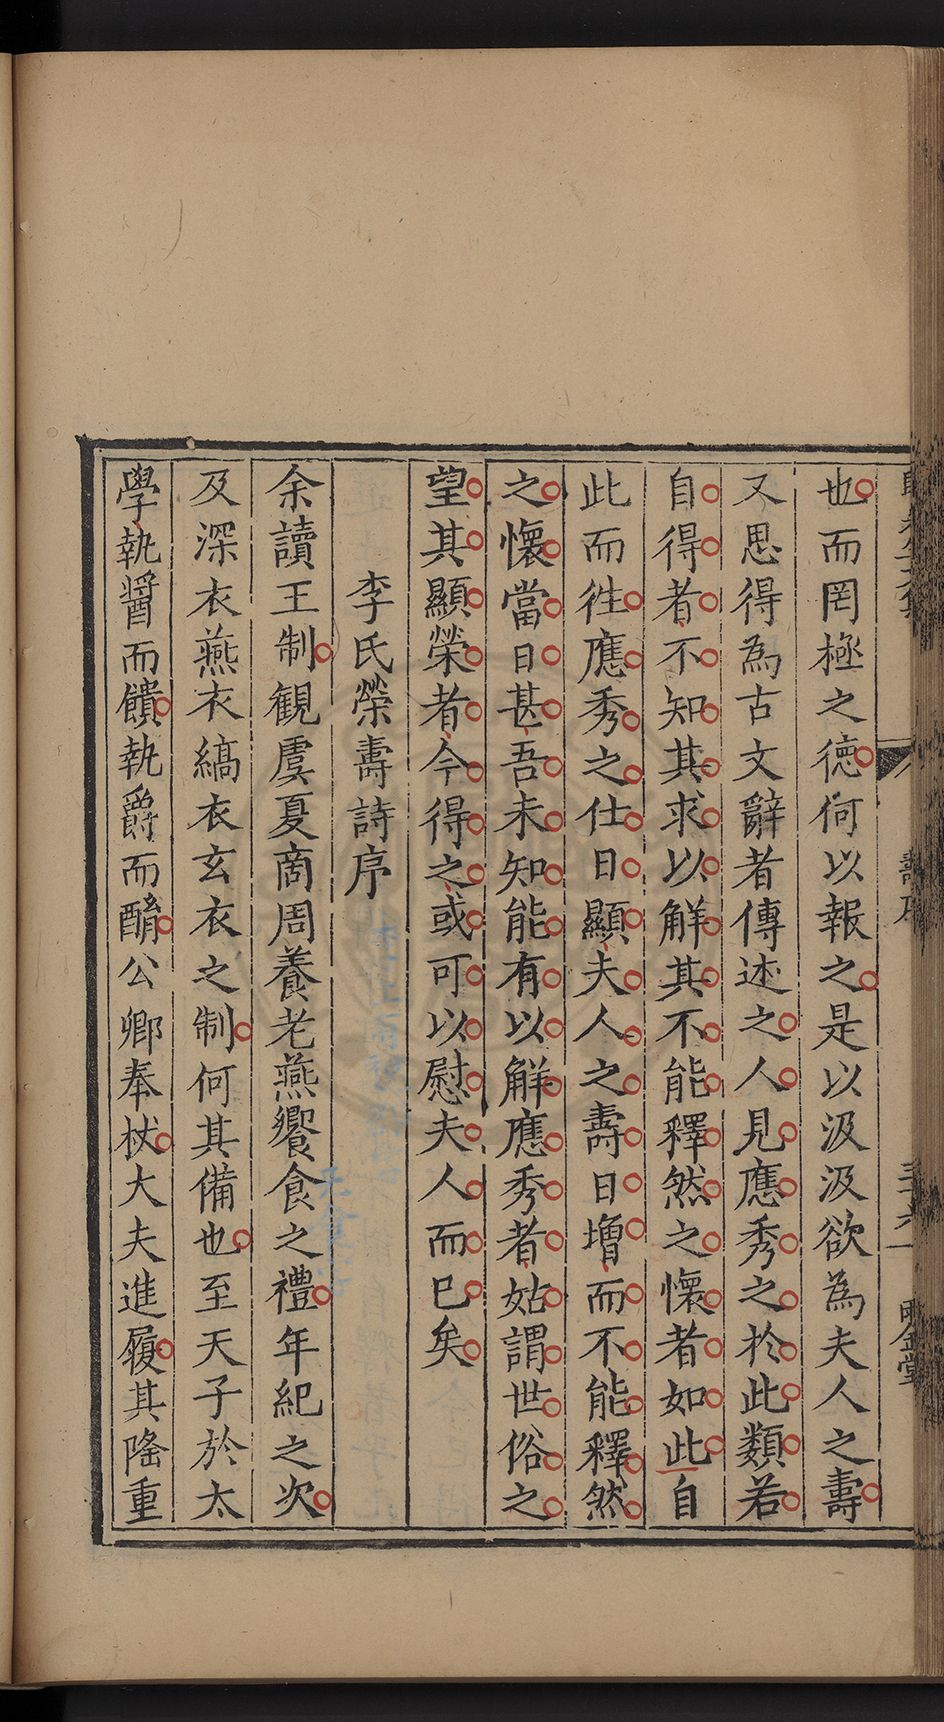 也而罔極之德何以報之是以汲汲欲為夫人之壽
又思得為古文辭者傳述之人見應秀之於此類若
自得者不知其求以解其不能釋然之懷者如此自
此而徃應秀之仕日顯夫人之壽日增而不能釋然
之懷當日甚吾未知能有以解應秀者姑謂世俗之
望其顯榮者今得之或可以慰夫人而已矣
李氏榮壽詩序
余讀王制觀虞夏商周養老燕饗食之禮年紀之次
及深衣燕衣縞衣玄衣之制何其備也至天子於太
學執醬而饋執爵而酳公卿奉杖大夫進履其隆重